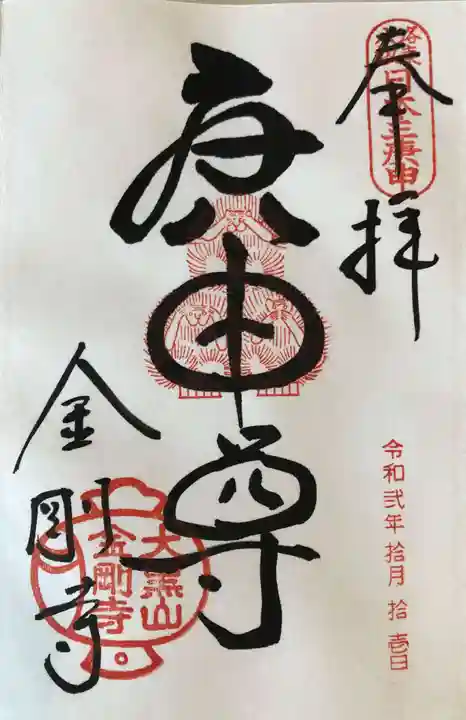 奉拝
日本三庚申
庚申尊
令和弐年拾月拾壱日
金剛寺
大黒山
金剛寺